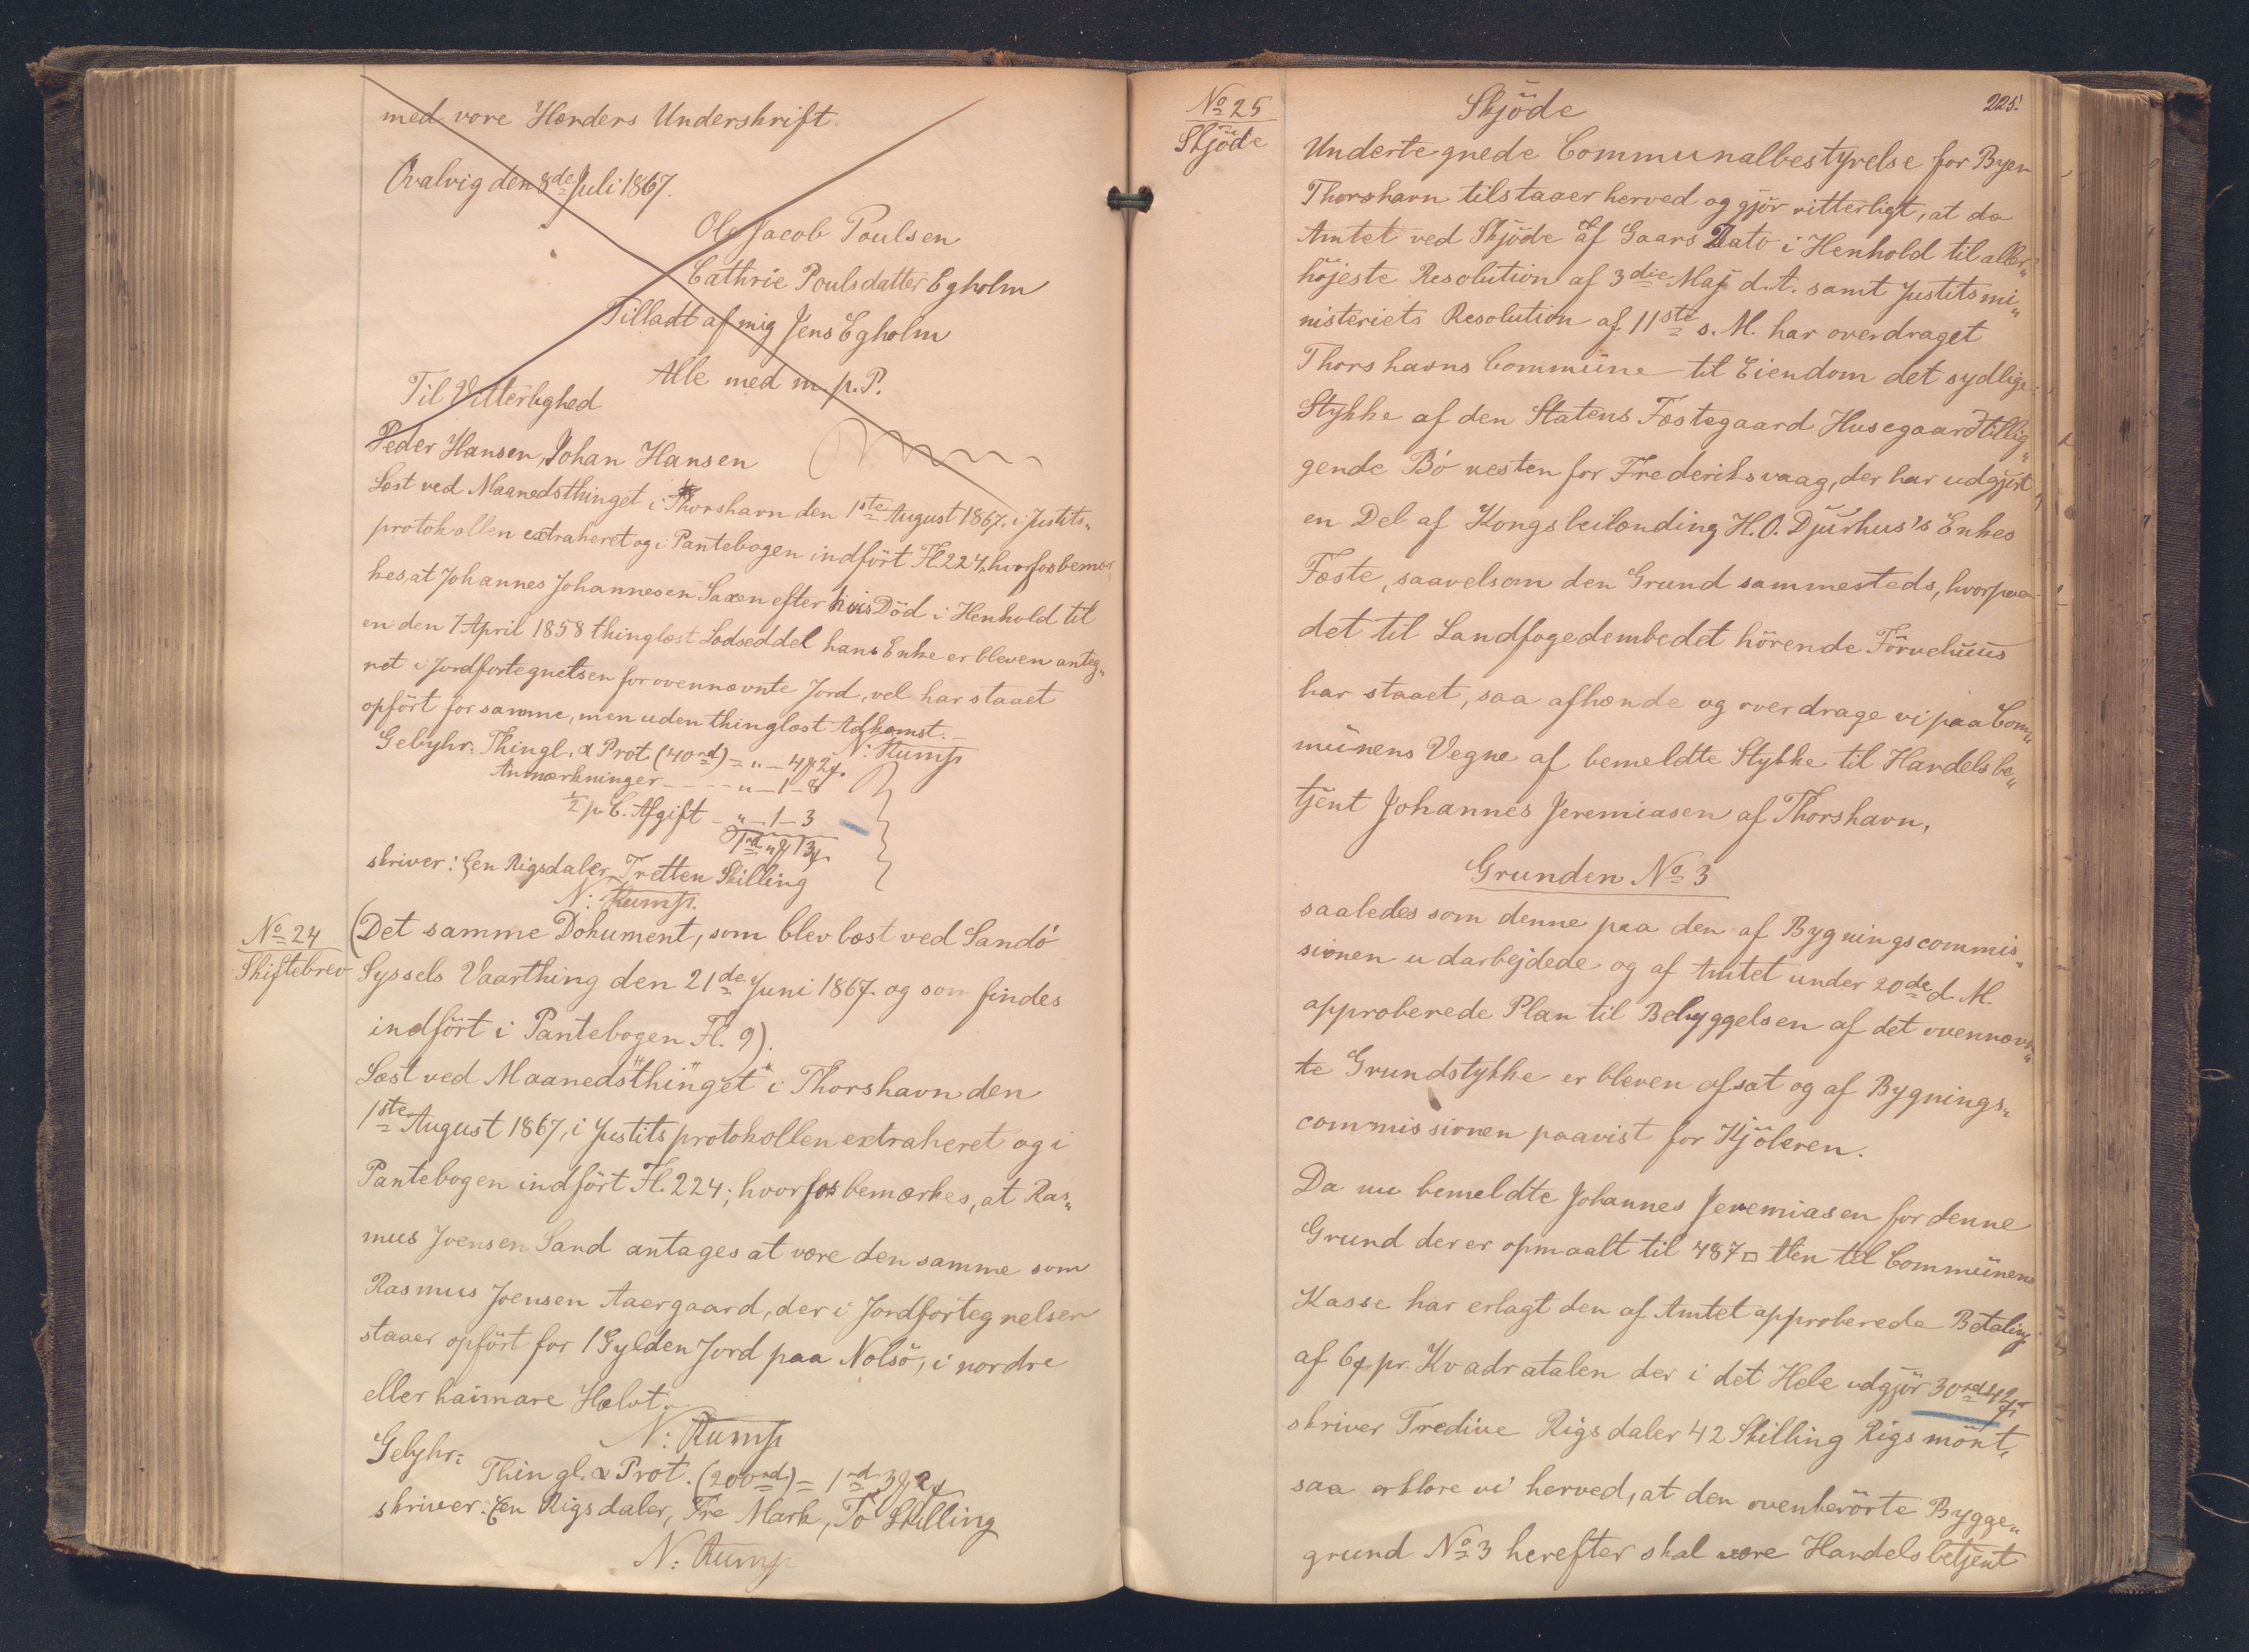 med vore Hænders Underskrift
Qvalvig den 8de Juli 1867.
Ole Jacob Poulsen
Cathrie Poulsdatter Egholm
Tilladt af mig Jens Egholm
Alle med m. p. P.
Til Vitterlighed
Peder Hansen, Johan Hansen
Læst ved Maanedsthinget i Thorshavn den 1ste August 1867, i Justits„
protokollen extraheret og i Pantebogen indført Fl. 224, hvorfor bemær
kes, at Johannes Johannesen Saxen efter hvis Död i Henhold til
en den 7 April 1858 thinglæst Lodseddel hans Enke er bleven anteg„
net i Jordfortegnelsen for ovennævnte Jord, vel har staaet
opfört for samme, men uden thinglæst Adkomst.
N: Rump
Gebyhr: Thingl. & Prot (40rd) = „ – 4 2
Anmærkninger - - - - „ – 1 – 8
½ p C. Afgift – „ – 1 – 3
1rd „ 13
skriver: Een Rigsdaler Tretten Skilling
N: Rump.
No 24
Skiftebrev
(Det samme Dokument, som blev læst ved Sandö
Syssels Vaarthing den 21de Juni 1867 og som findes
indfört i Pantebogen Fl. 9).
Læst ved Maanedsthinget i Thorshavn den
1ste August 1867, i Justitsprotokollen extraheret og i
Pantebogen indfört Fl. 224; hvorfor bemærkes, at Ras„
mus Joensen Sand antages at være den samme som
Rasmus Joensen Aaergaard, der i Jordfortegnelsen
staaer opfört for 1 Gylden Jord paa Nolsö, i nordre
eller haimare Helvt.
N: Rump
Gebyhr:
Thingl. & Prot. (200rd) = 1rd 3 2
skriver: Een Rigsdaler, Tre Mark, To Skilling
N: Rump
225.
No 25
Skjöde
Skjöde
Undertegnede Communalbestyrelse for Byen
Thorshavn tilstaaer herved og gjör vitterligt, at da
Amtet ved Skjöde af Gaars Dato i Henhold til aller„
höjeste Resolution af 3die Maj d. A. samt Justitsmi„
nisteriets Resolution af 11ste s. M. har overdraget
Thorshavns Commune til Eiendom det sydlige
Stykke af den Statens Fæstegaard Husegaard tillig„
gende Bö vesten for Frederiksvaag, der har udgjort
en Del af Kongsleilænding H. O. Djurhus's Enkes
Fæste, saavelsom den Grund sammesteds, hvorpaa
det til Landfogedembedet hörende Törvehuus
har staaet, saa afhænde og overdrage vi paa Com„
munens Vegne af bemeldte Stykke til Handelsbe„
tjent Johannes Jeremiasen af Thorshavn,
Grunden No 3
saaledes som denne paa den af Bygningscommis„
sionen udarbejdede og af Amtet under 20de d. M.
approberede Plan til Bebyggelsen af det ovennævn„
te Grundstykke er bleven afsat og af Bygnings„
commissionen paavist for Kjöberen.
Da nu bemeldte Johannes Jeremiasen for denne
Grund der er opmaalt til 487 □ Alen til Communens
Kasse har erlagt den af Amtet approberede Betaling
af 6 pr. Kvadratalen der i det Hele udgjör 30rd 42
skriver Tredive Rigsdaler 42 Skilling Rigsmönt,
saa erklære vi herved, at den ovenberörte Bygge„
grund No 3 herefter skal være Handelsbetjent